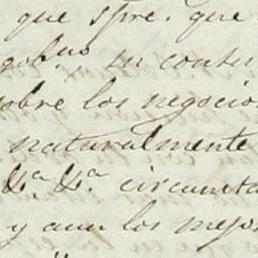 que spre. que
gob.nos su conten
sobre los negocios
naturalmente
&.a &.a circunsta
y aun los mejo